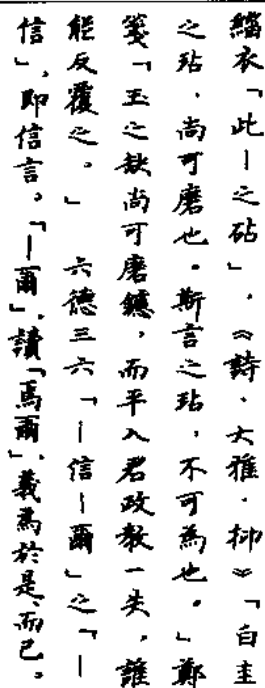 緇衣「此丨之砧」,《詩・大雅・抑》「白圭
之玷,尚可磨也。斯言之玷,不可為也。」鄭
箋「玉之缺尚可磨鑢,而平人君政教一失,誰
能反覆之。」 六德三六「丨信丨爾」之「丨
信」,即信言。「丨爾」,讀「焉爾」,義為於是、而已。